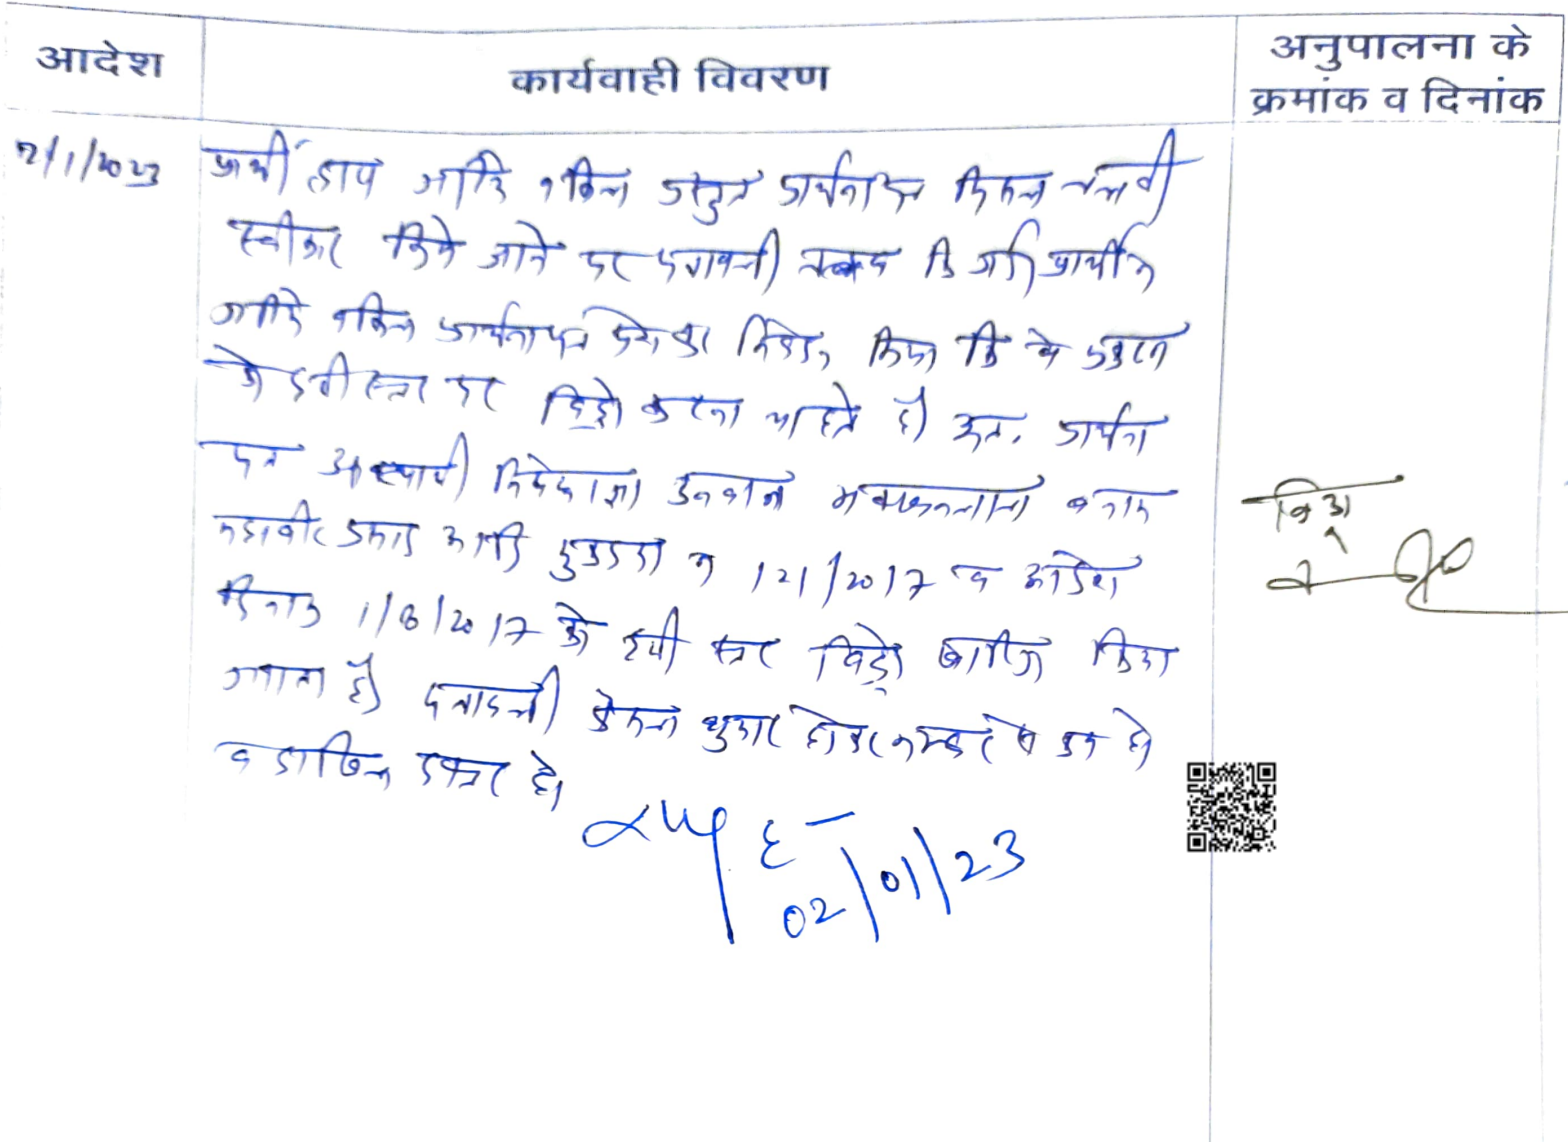 आदेश
कार्यवाही विवरण
अनुपालना के
क्रमांक व दिनांक
2/1/2023
प्रार्थी द्वारा जरिये वकिल प्रस्तुत प्रार्थनापत्र
स्वीकार किये जाने पर पत्रावली तलब कि प्रार्थी
जरिये वकिल प्रार्थनापत्र पेश कर निवेदन किया कि वे प्रकरण
को इसी स्तर पर विड्रो करना चाहते है। अत. प्रार्थना
पत्र अस्थायी निषेधाज्ञा उनवान बनाम
महावीर प्रसाद आदि मुकदमा न 121/2017 व आदेश
दिनांक 1/8/2017 को इसी स्तर विड्रो खारिज किया
जाता है। पत्रावली फैसल शुमार होकर नम्बर से कम हो
व दाखिल दफ्तर हो।
02/01/23